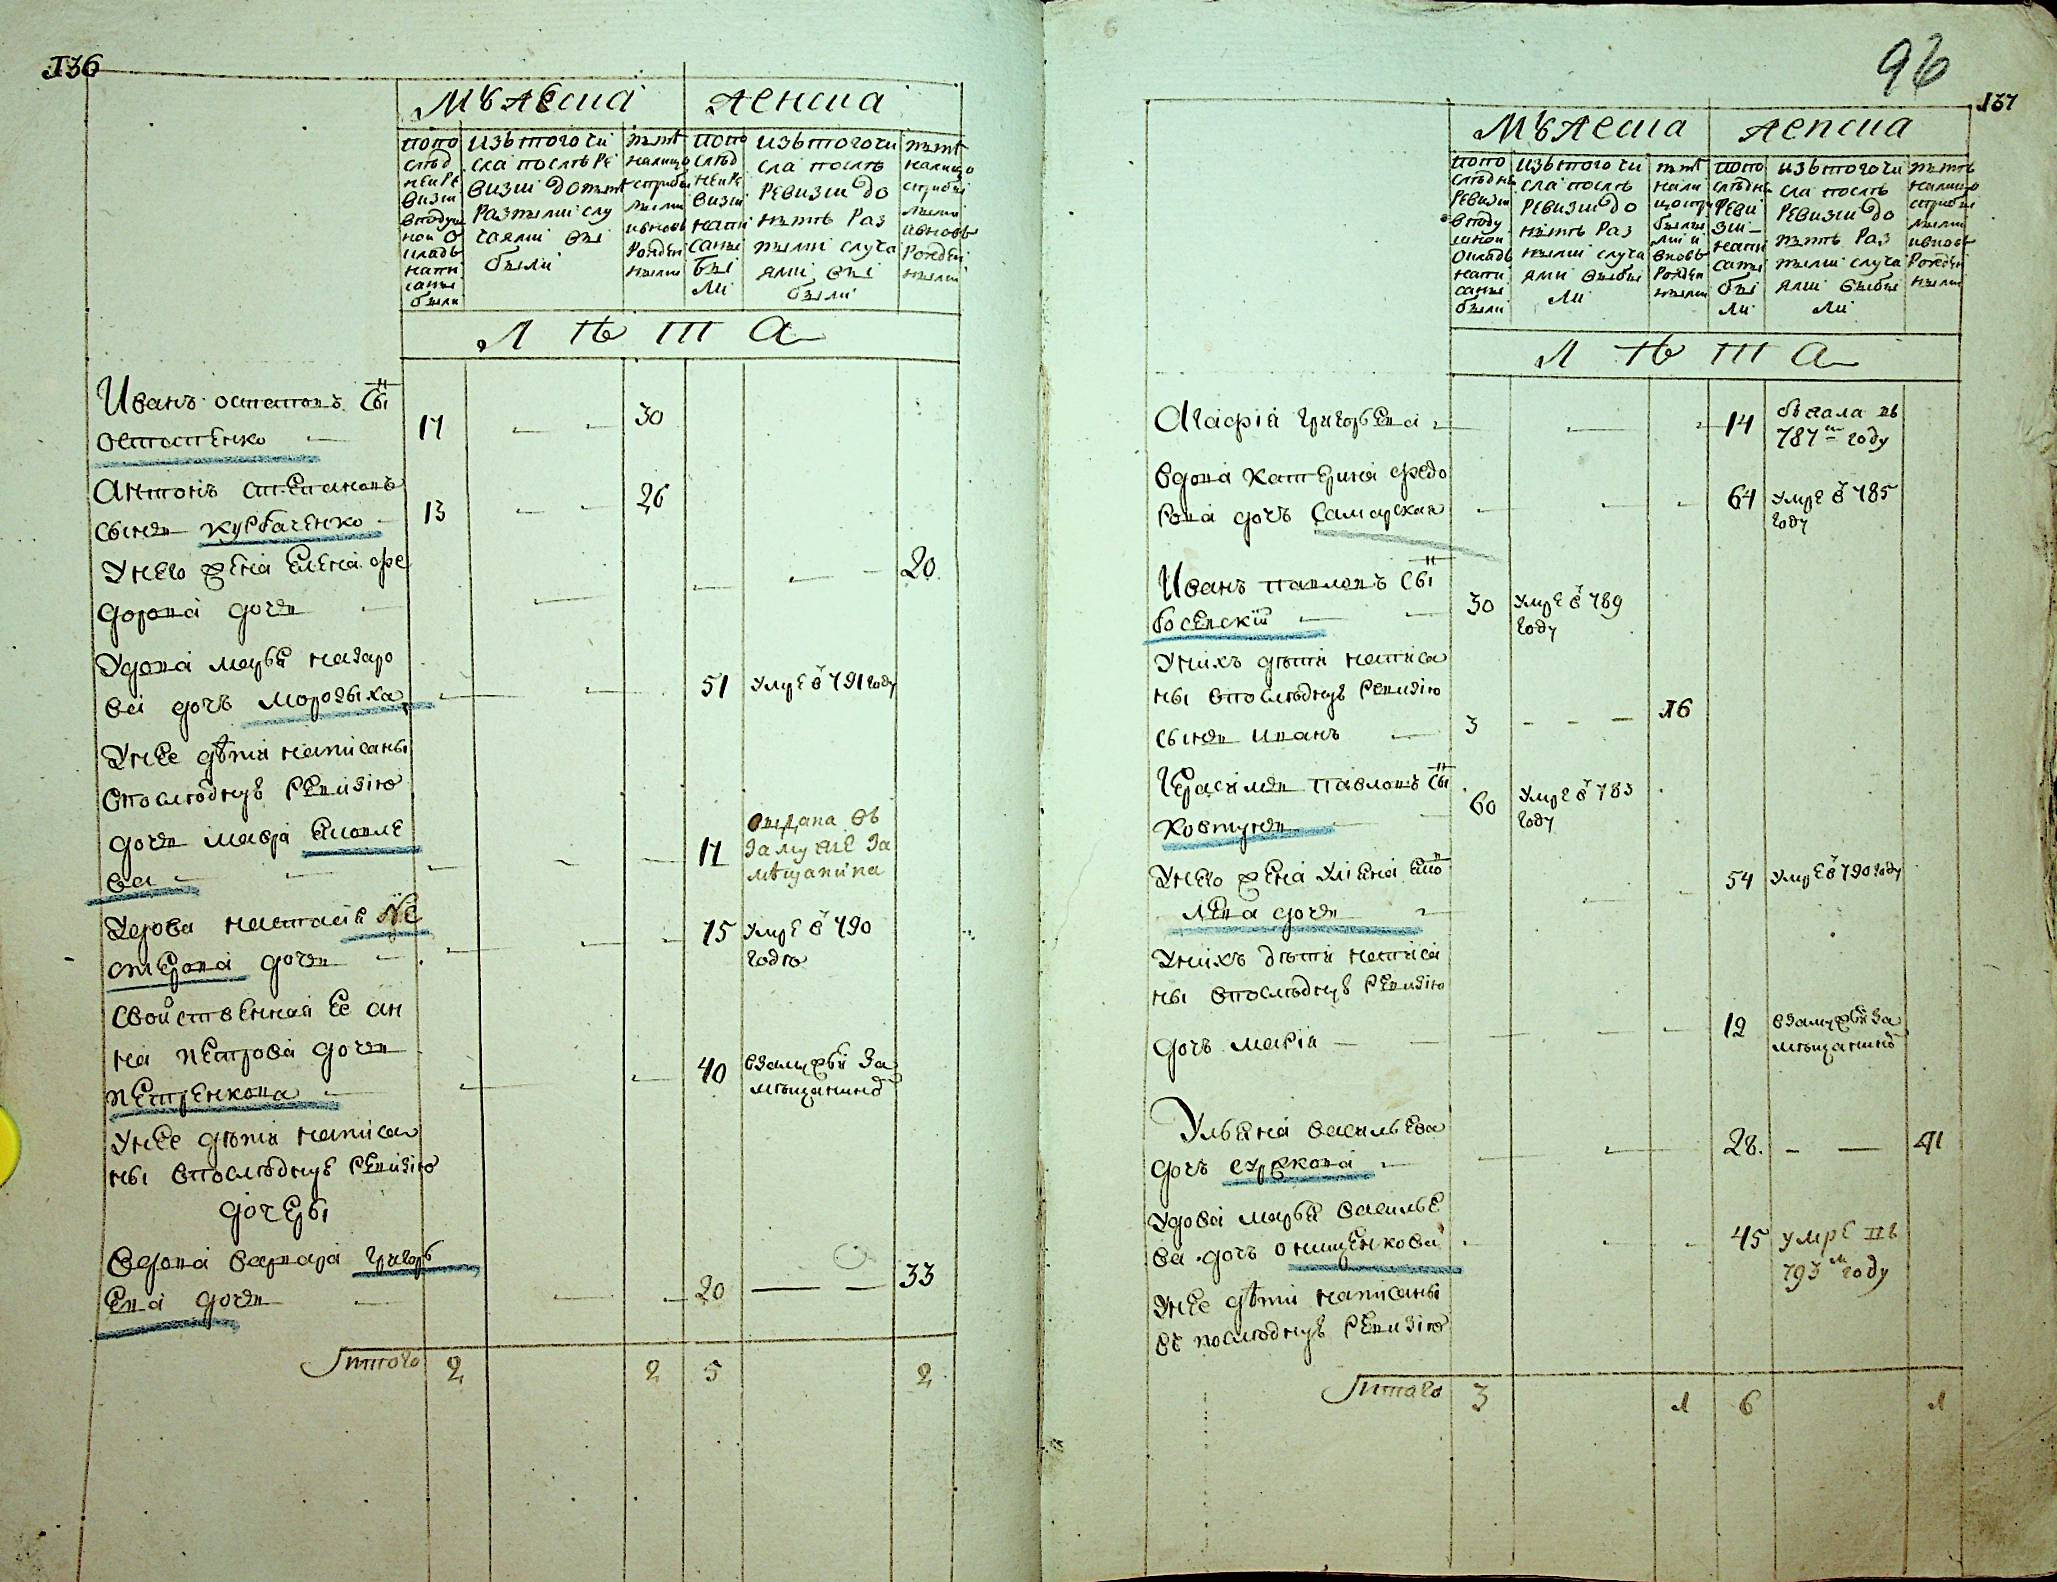 136
мужеска женска
по по
следней ре
визии
в подуш
ной о
кладъ
напи
саны
были
изъ того чи
сла после ре
визии до ныне
разными слу
чаями вы
были
ныне
налицо
с прибы
лыми
и вновь
рожден
ными
по по
след
ней ре
визии
напи
саны
бы
ли
изъ того чи
сла после
ревизии до
ныне раз
ными случа
ями вы
были
ныне
налицо
с прибы
лыми
и вновь
рожден
ными
Л ѣ т а
Иванъ остаповъ сын
остапенко 17 30
Антонъ степановъ
сынъ курбаченко 13 26
У него жена Елена фе
дорова дочь 20
Удова марья назаро
ва дочъ морозиха 51 умре в 791 году
У нее дѣти написаны
в последную ревизию
дочь мавра яковле
ва 17 выдана въ
замужие за
мѣщанина
Удова настасия не
стерова дочь 75 умре в 790
годю
свойственная ее ан
на петрова дочь
петренкова 40 взамужьи за
мѣщаниномъ
У нее дѣти написа
ны в последную ревизию
дочеры
Вдова варвара григорь
ева дочь 20 33
Итого 2 2 5 2
96
137
мужеска женска
по по
следней
ревизии
в поду
шной
окладъ
напи
саны
были
изъ того чи
сла после
ревизии до
ныне раз
ными случа
ями выбы
ли
ныне
нали
цо с при
былы
ми и
вновь
рожден
ными
по по
следней
реви
зии
напи
саны
бы
ли
изъ того чи
сла после
ревизии до
ныне раз
ными случа
ями выбы
ли
ныне
налицо
с прибы
лыми
и вновь
рожден
ными
Л ѣ т а
Агафия григорьева 14 бежала въ
787м году
Вдова катерина федо
рова дочъ самарская 64 умре в 785
году
Иванъ павловъ сын
босенский 30 умре в 789
году
У нихъ дѣти написа
ны в последную ревизию
сынъ иванъ 3 16
Герасимъ павловъ сын
ковтунъ 60 умре в 783
году
У него жена улиана яко
влева дочь 54 умре в 790 году
У нихъ дети написа
ны в последную ревизию
дочь мария 12 взамужьи за
мещаниномъ
Ульяна васильева
дочъ сужкова 28 41
Удова марья василье
ва дочъ онищенкова 45 умре въ
793м году
У нее дѣти написаны
въ последную ревизию
Итого 3 1 6 1